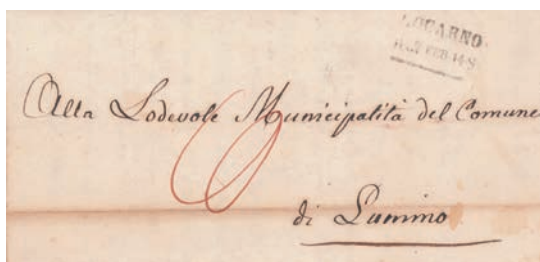 LOCARNO
Alla Lodevole Municipalità del Comune
di Lumino